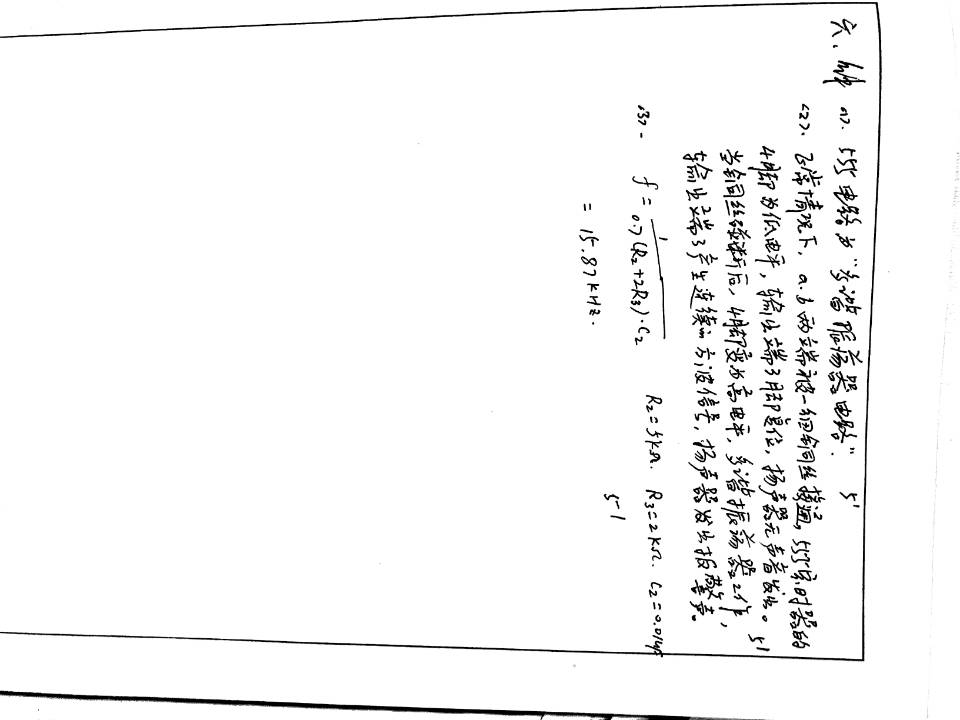 六、解 (1). 555电路为“多谐振荡器电路”. 5'
(2). 正常情况下, a.b两端被一细铜丝接通, 555定时器的
4脚为低电平, 输出端3脚复位, 扬声器无声音发出。
当铜丝碰断后, 4脚变为高电平, 多谐振荡器工作, 5'
输出端3产生连续的方波信号, 扬声器发出报警声。
(3). f = 1 / 0.7(R₂+2R₃)·C₂ R₂=5kΩ. R₃=2kΩ. C₂=0.01μF
= 15.87kHz. 5'